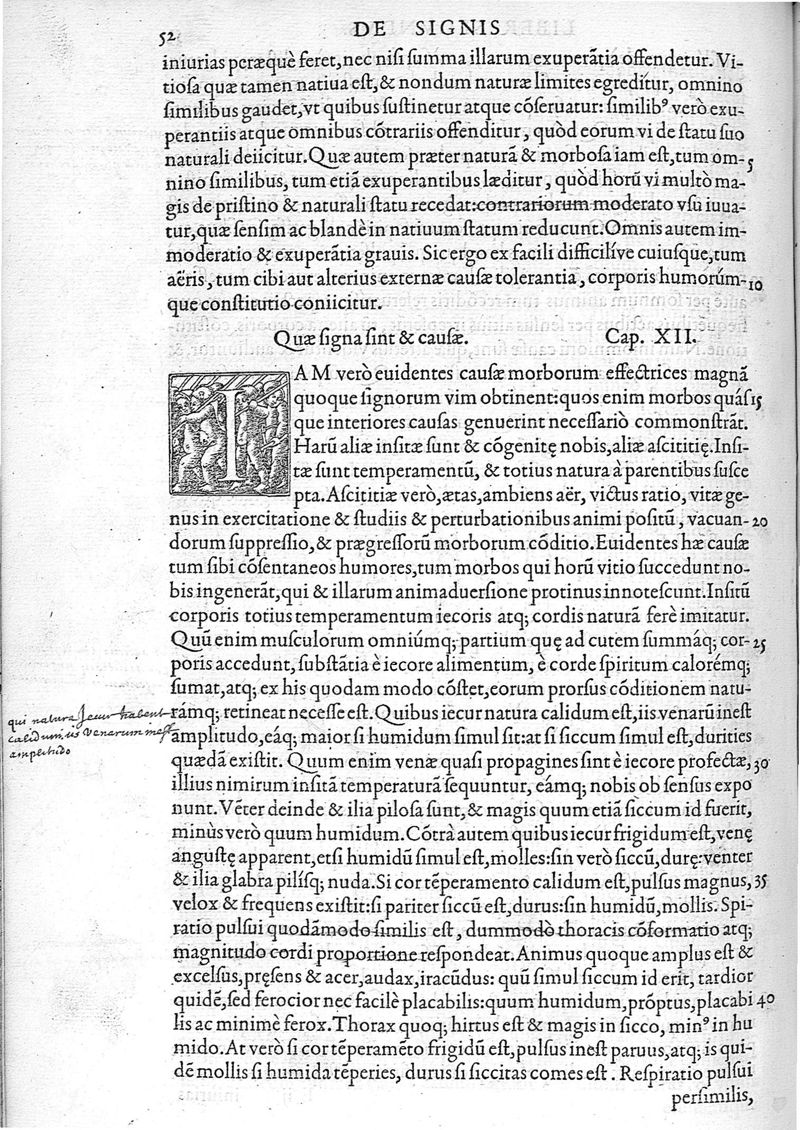 52
DE SIGNIS
iniurias peræquè feret,nec nisi summa illarum exuperātia offendetur. Vi-
tiosa quæ tamen natiua est,& nondum naturæ limites egreditur, omnino
similibus gaudet,vt quibus sustinetur atque cōseruatur: similibꝰ verò exu-
perantiis atque omnibus cōtrariis offenditur, quòd eorum vi de statu suo
naturali deiicitur.Quæ autem præter naturā & morbosa iam est,tum om- 5
nino similibus, tum etiā exuperantibus læditur, quòd horū vi multò ma-
gis de pristino & naturali statu recedat:contrariorum moderato vsu iuua-
tur,quæ sensim ac blandè in natiuum statum reducunt.Omnis autem im-
moderatio & exuperātia grauis. Sic ergo ex facili difficilíve cuiusque,tum
aëris, tum cibi aut alterius externæ causæ tolerantia, corporis humorúm- 10
que constitutio coniicitur.
Quæ signa sint & causæ. Cap. XII.
IAM verò euidentes causæ morborum effectrices magnā
quoque signorum vim obtinent:quos enim morbos quás 15
que interiores causas genuerint necessariò commonstrāt.
Harū aliæ insitæ sunt & cōgenitę nobis,aliæ ascititię.Insi-
tæ sunt temperamentū, & totius natura à parentibus susce
pta.Ascititiæ verò,ætas,ambiens aër, victus ratio, vitæ ge-
nus in exercitatione & studiis & perturbationibus animi positū, vacuan- 20
dorum suppressio,& prægressorū morborum cōditio.Euidentes hæ causæ
tum sibi cōsentaneos humores,tum morbos qui horū vitio succedunt no-
bis ingenerāt,qui & illarum animaduersione protinus innotescunt.Insitū
corporis totius temperamentum iecoris atq; cordis naturā ferè imitatur.
Quū enim musculorum omniúmq; partium quę ad cutem summáq; cor- 25
poris accedunt, substātia è iecore alimentum, è corde spiritum calorémq;
sumat,atq; ex his quodam modo cōstet,eorum prorsus cōditionem natu-
rámq; retineat necesse est.Quibus iecur natura calidum est,iis venarū inest
qui natura Jecur habent
calidum, iis Venarum inest
amplitudo
amplitudo,eáq; maior si humidum simul sit:at si siccum simul est,durities
quædā existit. Quum enim venæ quasi propagines sint è iecore profectæ, 30
illius nimirum insitā temperaturā sequuntur, eámq; nobis ob sensus expo
nunt.Vēter deinde & ilia pilosa sunt,& magis quum etiā siccum id fuerit,
minùs verò quum humidum.Cōtrà autem quibus iecur frigidum est,venę
angustę apparent,etsi humidū simul est,molles:sin verò siccū,durę:venter
& ilia glabra pilísq; nuda.Si cor tēperamento calidum est,pulsus magnus, 35
velox & frequens existit:si pariter siccū est,durus:sin humidū,mollis. Spi-
ratio pulsui quodāmodo similis est, dummodò thoracis cōformatio atq;
magnitudo cordi proportione respondeat.Animus quoque amplus est &
excelsus,pręsens & acer,audax,iracūdus: quū simul siccum id erit, tardior
quidē,sed ferocior nec facilè placabilis:quum humidum,prōptus,placabi 40
lis ac minimè ferox.Thorax quoq; hirtus est & magis in sicco, minꝰ in hu
mido.At verò si cor tēperamēto frigidū est,pulsus inest paruus,atq; is qui-
dē mollis si humida tēperies, durus si siccitas comes est. Respiratio pulsui
persimilis,